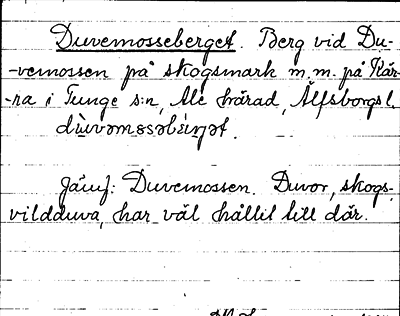 Duvemosseberget. Berg vid Du-
-vemossen på skogsmark m.m. på Kär-
-ra i Tunge s:n, Ale härad, Älfsborgs l.
dùvəmɔsəbæ̀rjət.
Jämf: Duvemossen. Duvor, skogs-
vildduva, har väl hållit till där.